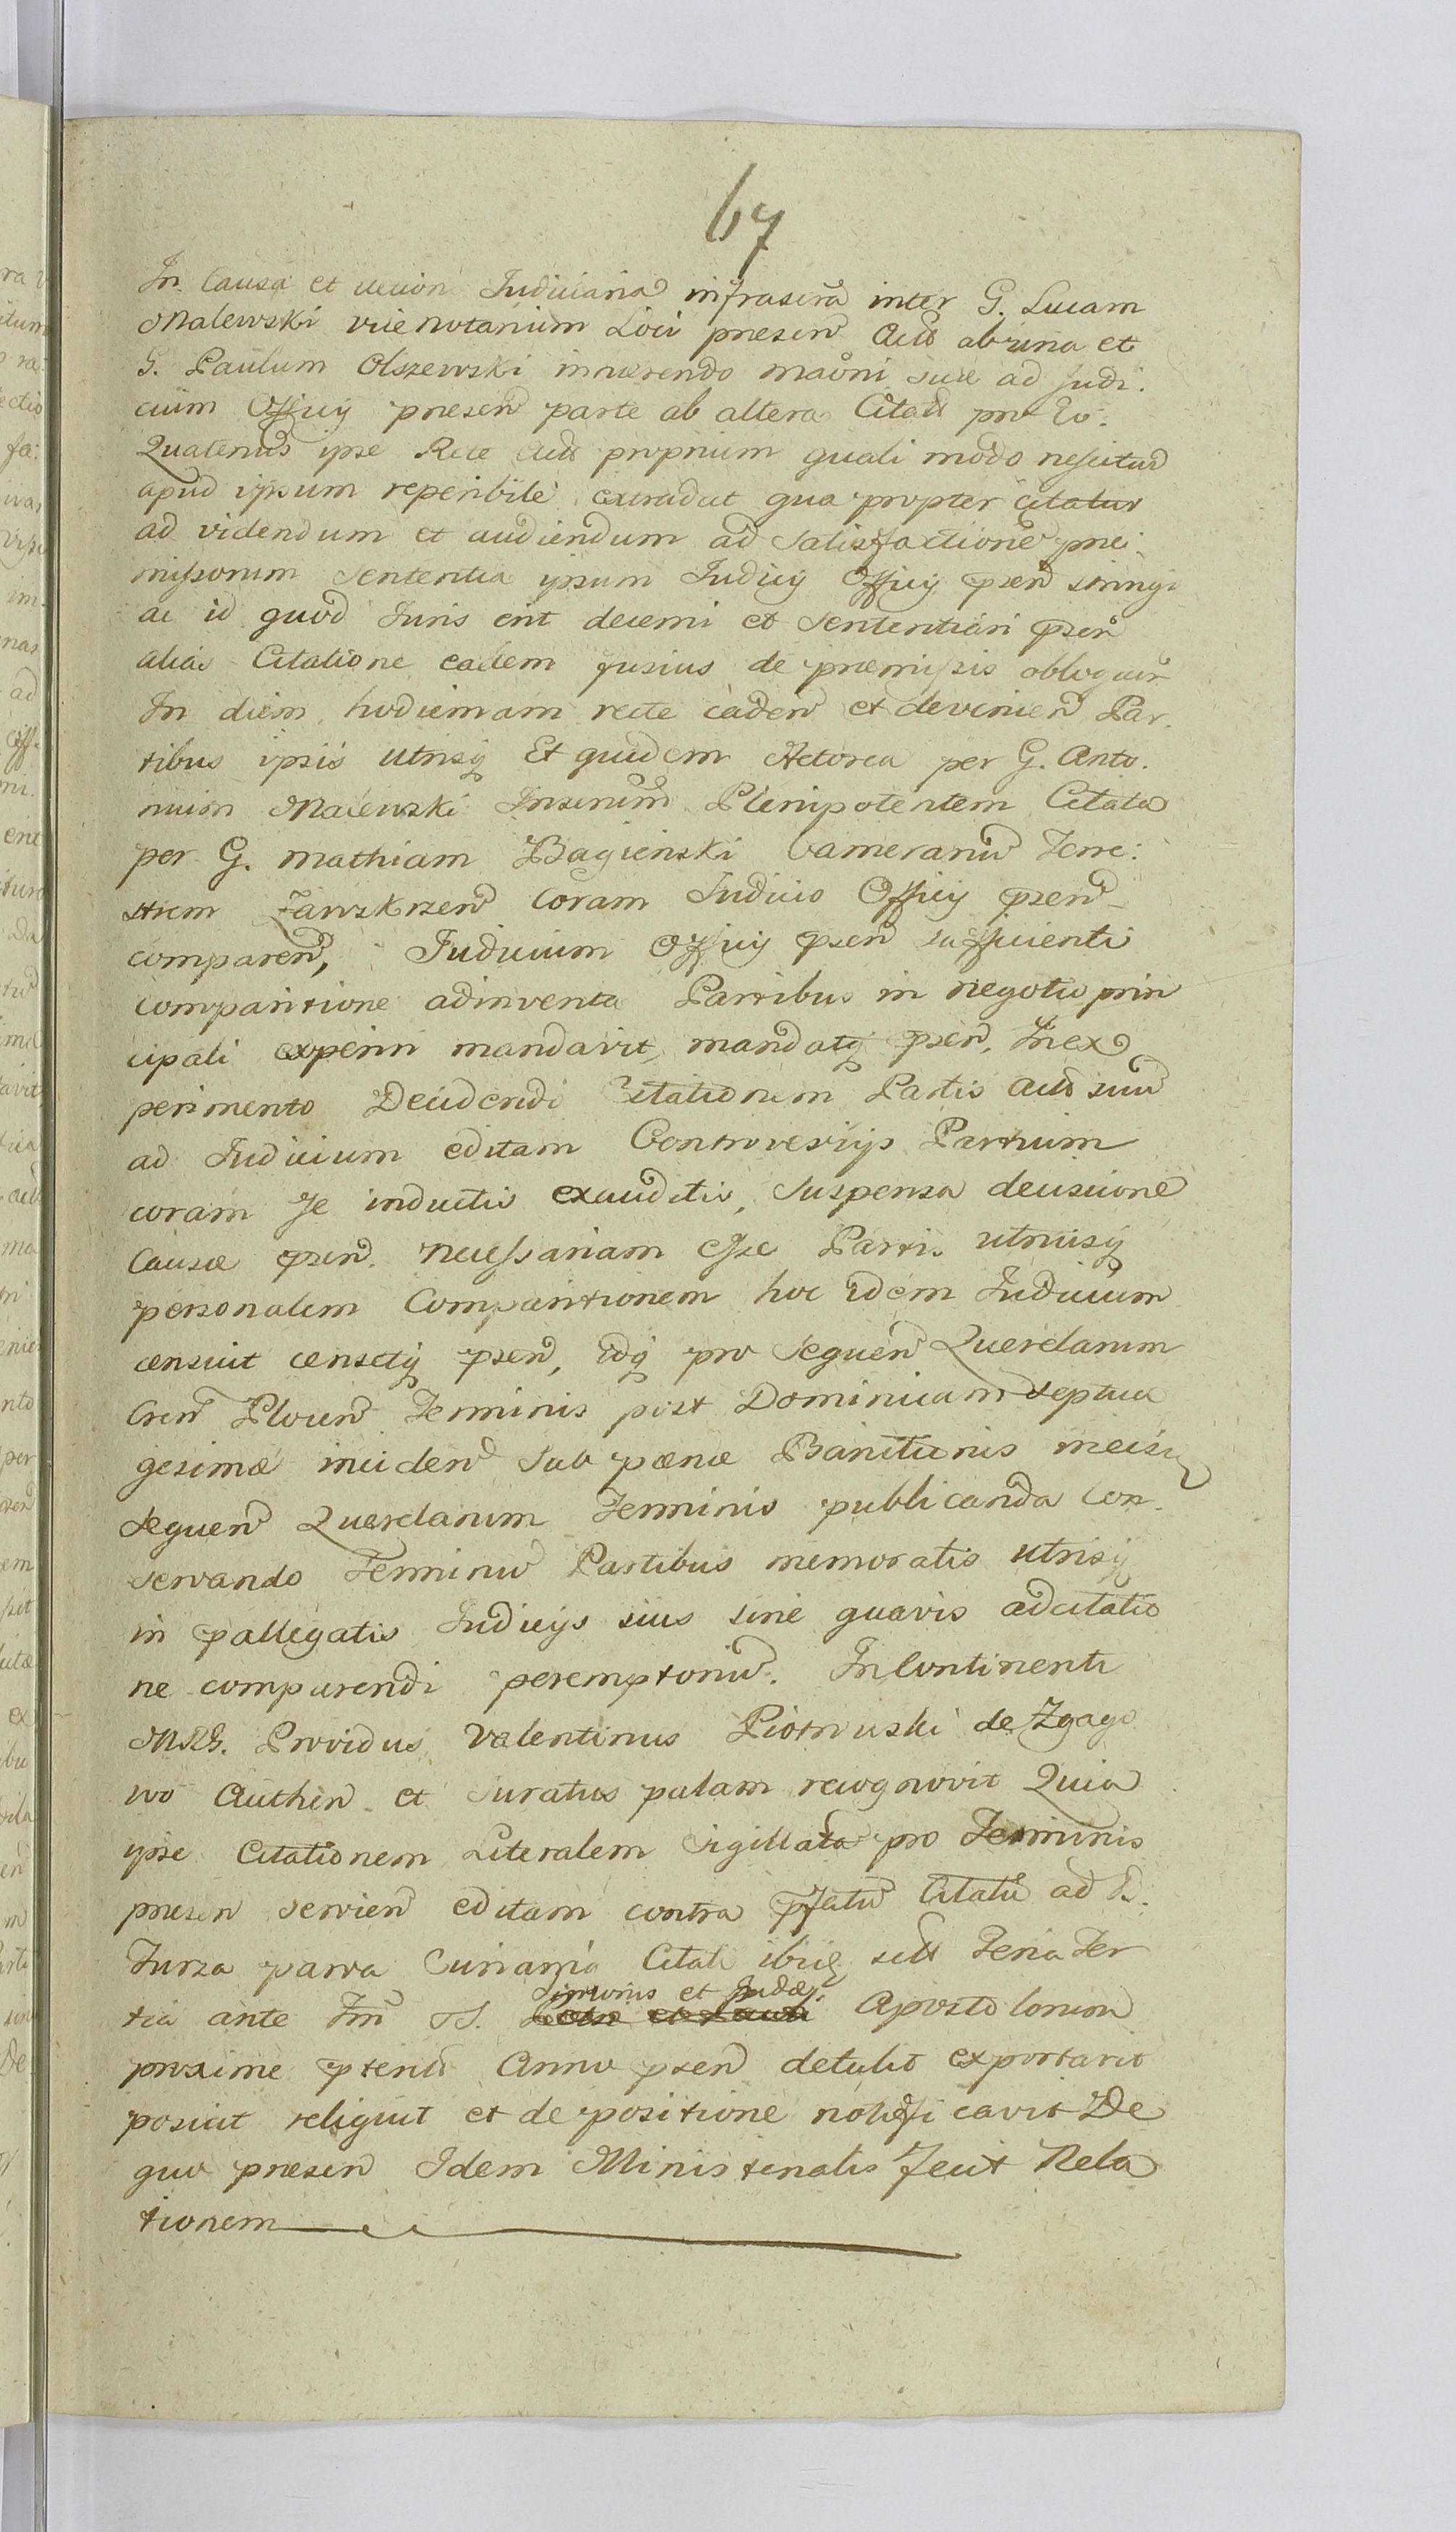 67
In Causa et accion Judiciaria infrascra inter G. Lucam
Malewski vice notarium Loci presen Actt ab una et
G. Paulum Olszewski inhaerendo maoni suae ad Judi:
cium Officij presen parte ab altera Citatt prt Eo:
Quatenus ipse Rcte Actt proprium quali modo nescitur
apud ipsum reperibile extradat qua propter citatur
ad videndum et audiendum ad satisfactione prei-
missorum Sententia ipsum Judicij Officij psen stringi
ac id quod Juris erit decerni et Sententiari psen
alias Citatione eadem fusius de praemissis obloquen
In diem hodiernam recte caden et devenien Par.
tibus ipsis utrisq Et quidem Actorea per G. Anto.
nium Malewski Insertum Plenipotentem Citata
per G. Mathiam Bagienski Camerariu Terre:
strem Zawskrzen Coram Judicio Officij psen
comparen, Judicium Officij psen sufficienti
comparitione adinventa Partibus in negotio prin
cipali experiri mandavit, mandatq psen, In ex
perimento Decidendi Citationem Partis Actt suu
ad Judicium editam Controversijs Partium
coram se inductis exauditis, Suspensa decisione
Causae psen. necessariam esse Partis utriusq
personalem Comparitionem hoc idem Judicium
censuit censetq psen, idq pro Sequen Querelarum
Cren Plocen Terminis post Dominicam Septua
gesimae inciden Sub paena Banitionis in eisd
Sequen Querelarum Terminis publicanda Con-
servando Terminu Partibus memoratis utrisq
in pallegatis Judicijs suis sine quavis adcitatio
ne comparendi peremptoriu. In Continenti
MRG. Providus Valentinus Piotrowski de Zgago
wo Authen et Juratus palam recognovit Quia
ipse Citationem Literalem Sigillata pro Terminis
presen servien editam contra pfatu Citatu ad B.
Turza parva Curiamq Citati ibiq sitt Feria Ter
tia ante Fm SS. Simonis et Judae Apostolorum
proxime pterit Anno psen detulit exportavit
posuit reliquit et de positione notificavit De
quo presen Idem Ministerialis fecit Rela
tionem